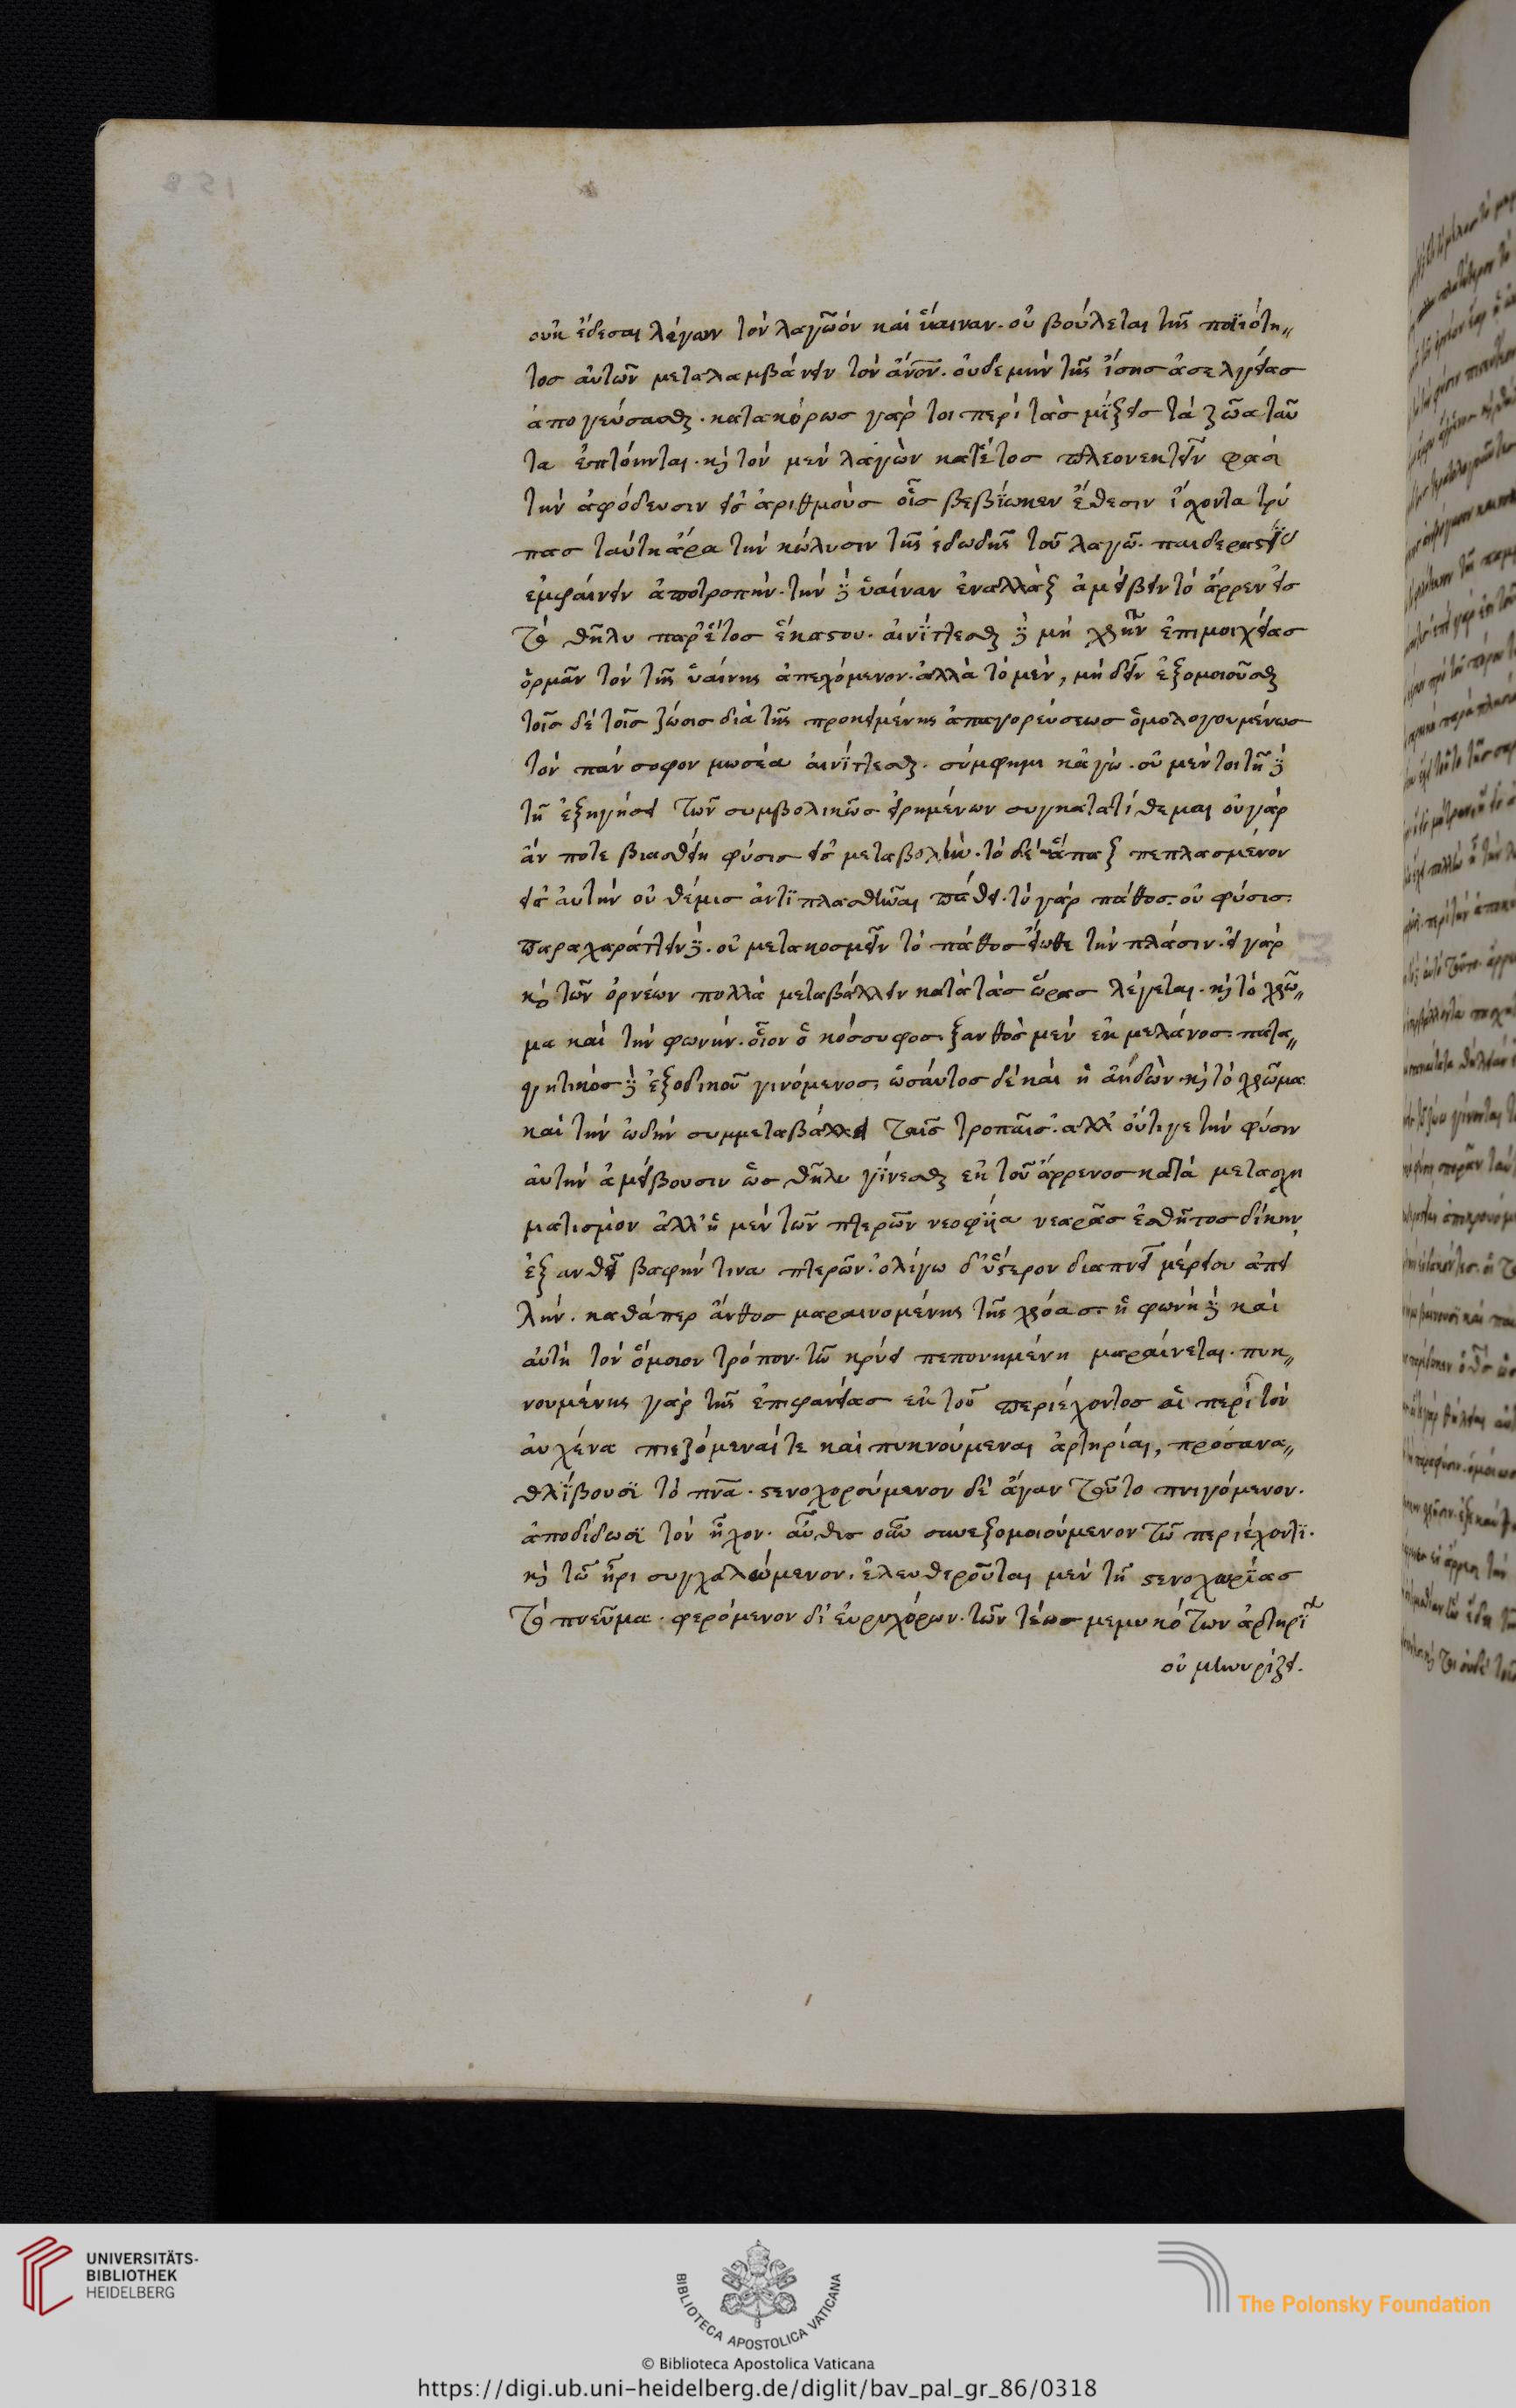 οὐκ ἔδεσαι λέγων τὸν λαγωὸν καὶ ὕαιναν. οὐ βούλεται τῆς ποιότη〃
τος αὐτῶν μεταλαμβάνειν τὸν ἄνον. οὐδὲ μὴν τῆς ἴσης ἀσελγείας
ἀπογεύσασθαι. κατακόρως γάρ τοι περὶ τὰς μίξεις τὰ ζῶα ταῦ
τα ἐπτόηνται. καὶ τὸν μὲν λαγὼν κατ' ἔτος πλεονεκτεῖν φασὶ
τὴν ἀφόδευσιν εἰς ἀριθμοὺς οἷς βεβίωκεν ἔθεσιν ἴσχοντα τρύ
πας ταύτη ἄρα τὴν κώλυσιν τῆς ἐδωδῆς τοῦ λαγῶ. παιδεραστίας
ἐμφαίνειν ἀποτροπήν. τὴν δὲ ὕαιναν ἐναλλὰξ ἀμείβειν τὸ ἄρρεν εἰς
τὸ θῆλυ παρ' ἔτος ἕκαστον. αἰνίττεσθαι δὲ μὴ χρῆναι ἐπὶ μοιχείας
ὁρμᾶν τὸν τῆς ὑαίνης ἀπεχόμενον. ἀλλὰ τὸ μὲν, μὴ δεῖν ἐξομοιοῦσθαι
τοῖς δὲ τοῖς ζώοις διὰ τῆς προκειμένης ἀπαγορεύσεως ὁμολογουμένως
τὸν πάνσοφον μωσέα αἰνίττεσθαι. σύμφημι κἀγώ. οὐ μέντοι τῆ δὲ
τῆ ἐξηγήσει τῶν συμβολικῶς εἰρημένων συγκατατίθεμαι οὐ γὰρ
ἄν ποτε βιασθείη φύσις εἰς μεταβολήν. τὸ δὲ ἅπαξ πεπλασμένον
εἰς αὐτὴν οὐ θέμις ἀντιπλασθῆναι πάθει. τὸ γὰρ πάθος. οὐ φύσις.
παραχαράττειν δὲ. οὐ μετακοσμεῖν τὸ πάθος εἴωθε τὴν πλάσιν. εἰ γὰρ
καὶ τῶν ὀρνέων πολλὰ μεταβάλλειν κατὰ τὰς ὥρας λέγεται. καὶ τὸ χρῶ〃
μα καὶ τὴν φωνήν. οἷον ὁ κόσσυφος. ξανθὸς μὲν ἐκ μέλανος. πατα〃
γητικὸς δὲ ἐξ ὠδικοῦ γινόμενος. ὡσαύτος δὲ καὶ ἡ ἀηδὼν. καὶ τὸ χρῶμα
καὶ τὴν ὠδὴν συμμεταβάλλει ταῖς τροπαῖς. ἀλλ' οὔτι γε τὴν φύσιν
αὐτὴν ἀμείβουσιν ὡς θῆλυ γίνεσθαι ἐκ τοῦ ἄρρενος κατὰ μετασχη
ματισμόν ἀλλ' ἡ μὲν τῶν πτερῶν νεοφυία νεαρᾶς ἐσθῆτος δίκην
ἐξανθεῖ βαφήν τινα πτερῶν. ὀλίγω δ' ὕστερον διαπνεῖ μέρειον ἀπει
λήν. καθάπερ ἄνθος μαραινομένης τῆς χρόας. ἡ φωνὴ δὲ καὶ
αὐτὴ τὸν ὅμοιον τρόπον. τῶ κρύει πεπονημένη μαραίνεται. πυκ〃
νουμένης γὰρ τῆς ἐπιφανείας ἐκ τοῦ περιέχοντος αἱ περὶ τὸν
αὐχένα πιεζόμεναί τε καὶ πυκνούμεναι ἀρτηρίαι, προσανα〃
θλίβουσι τὸ πνα. στενοχορούμενον δὲ ἄγαν τοῦτο πνιγόμενον.
ἀποδίδωσι τὸν ἦχον. αὖθις οὖν συνεξομοιούμενον τῶ περιέχοντι.
καὶ τῶ ἦρι συγχαλώμενον. ἐλευθεροῦται μὲν τῆ στενοχωρίας
τὸ πνεῦμα. φερόμενον δι' εὐρυχόρων. τῶν τέως μεμυκότων ἀρτηριῶν
οὐ μινυρίζει.
UNIVERSITÄTS-
BIBLIOTHEK
HEIDELBERG
BIBLIOTECA APOSTOLICA VATICANA
The Polonsky Foundation
© Biblioteca Apostolica Vaticana
https://digi.ub.uni-heidelberg.de/diglit/bav_pal_gr_86/0318